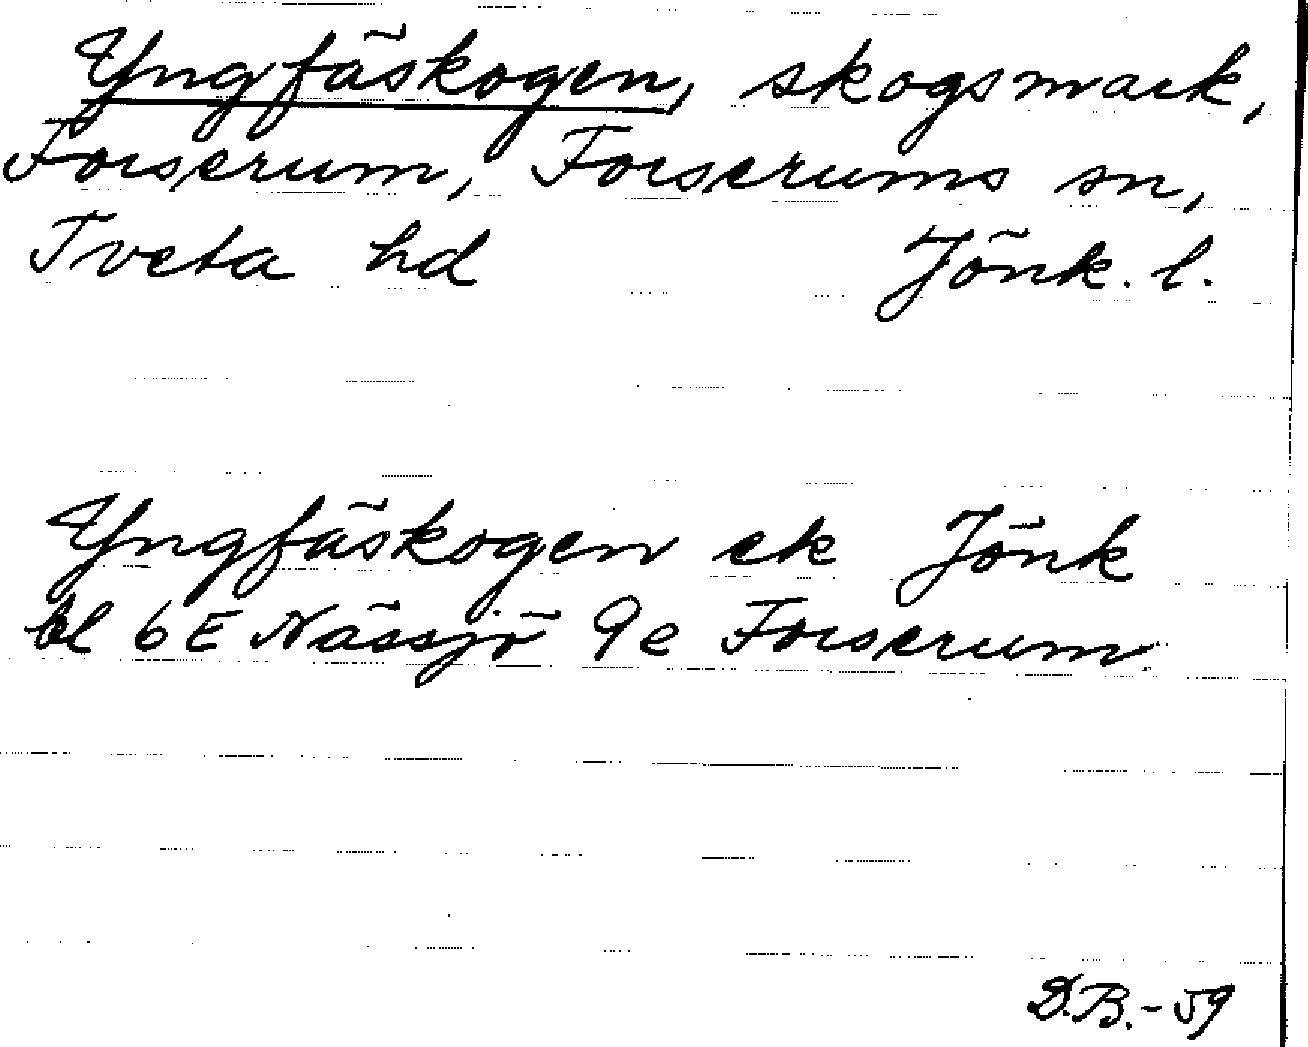 Yngfäskogen, skogsmark,
Forserum, Forserums sn,
Tveta hd Jönk. l.
Yngfäskogen ek Jönk
bl 6E Nässjö 9e Forserum
D.B.-59